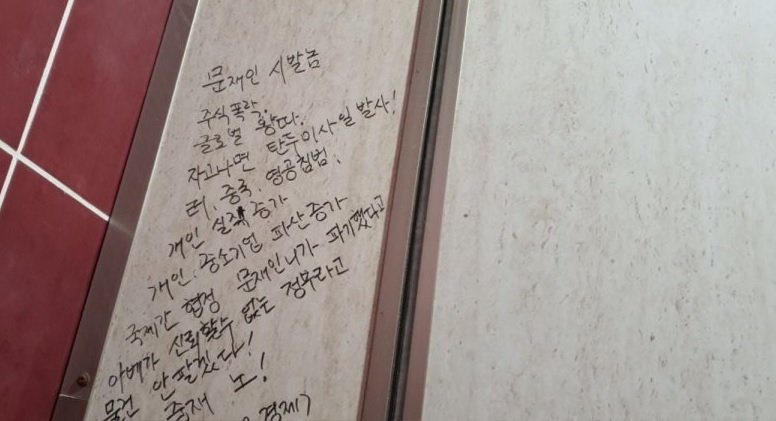 문재인 시발놈
주식폭락.
글로벌 왕따.
자고나면 탄두미사일 발사!
러, 중국, 영공침범.
개인 실직 증가
개인. 중소기업 파산증가
국제간 협정 문재인니가 파기했다고
아베가 신뢰할수 없는 정부라고
물건 안팔겠다!
중재 노!
경제